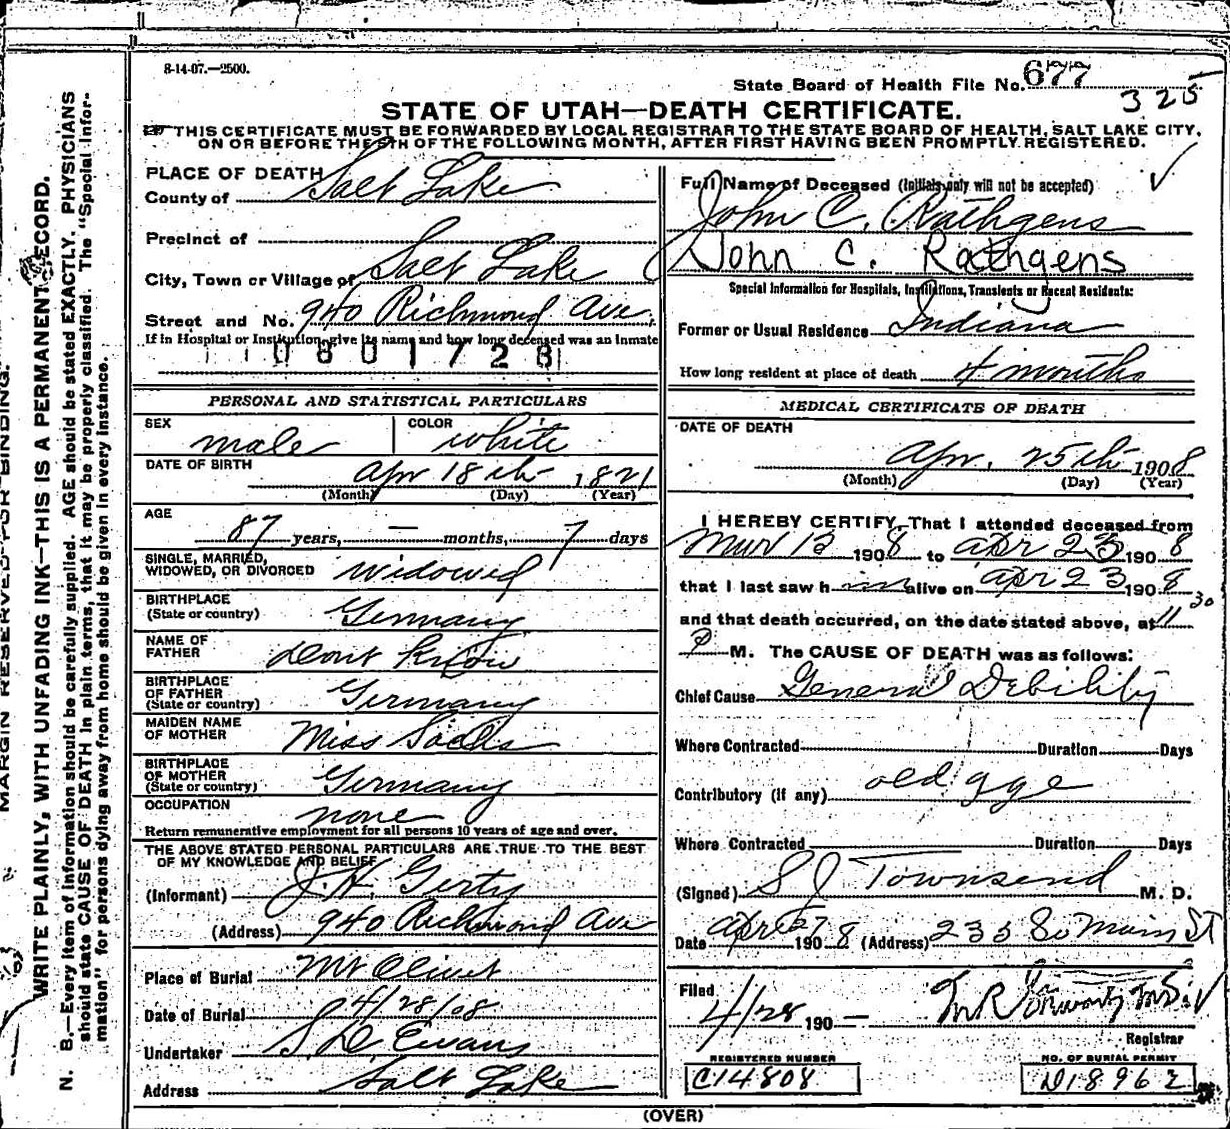 8-14-07.—2500.
State Board of Health File No. 677
325
STATE OF UTAH—DEATH CERTIFICATE.
THIS CERTIFICATE MUST BE FORWARDED BY LOCAL REGISTRAR TO THE STATE BOARD OF HEALTH, SALT LAKE CITY,
ON OR BEFORE THE 5TH OF THE FOLLOWING MONTH, AFTER FIRST HAVING BEEN PROMPTLY REGISTERED.
PLACE OF DEATH
County of Salt Lake
Precinct of
City, Town or Village of Salt Lake
Street and No. 940 Richmond Ave.
If in Hospital or Institution, give its name and how long deceased was an Inmate
0801728
PERSONAL AND STATISTICAL PARTICULARS
SEX male COLOR white
DATE OF BIRTH Apr 18th, 1821
(Month) (Day) (Year)
AGE
87 years, — months, 7 days
SINGLE, MARRIED,
WIDOWED, OR DIVORCED widowed
BIRTHPLACE
(State or country) Germany
NAME OF
FATHER dont know
BIRTHPLACE
OF FATHER
(State or country) Germany
MAIDEN NAME
OF MOTHER Miss
BIRTHPLACE
OF MOTHER
(State or country) Germany
OCCUPATION none
Return remunerative employment for all persons 10 years of age and over.
THE ABOVE STATED PERSONAL PARTICULARS ARE TRUE TO THE BEST
OF MY KNOWLEDGE AND BELIEF
(Informant) J. H. Gerty
(Address) 940 Richmond Ave
Place of Burial Mt Olivet
Date of Burial 4/28/08
Undertaker S. D. Evans
Address Salt Lake
Full Name of Deceased (Initials only will not be accepted)
John C. Rathgens
John C. Rathgens
Special Information for Hospitals, Institutions, Transients or Recent Residents:
Former or Usual Residence Indiana
How long resident at place of death 4 months
MEDICAL CERTIFICATE OF DEATH
DATE OF DEATH
Apr. 25th 1908
(Month) (Day) (Year)
I HEREBY CERTIFY, That I attended deceased from
Mar 13 1908 to Apr 23 1908
that I last saw him alive on Apr 23 1908
and that death occurred, on the date stated above, at 11 30
P M. The CAUSE OF DEATH was as follows:
Chief Cause General Debility
Where Contracted Duration Days
Contributory (if any) old age
Where Contracted Duration Days
(Signed) S J Townsend M. D.
Date Apr 1908 (Address) 235 So Main St
Filed 4/28 190—
Registrar
REGISTERED NUMBER
C14808
NO. OF BURIAL PERMIT
D18962
(OVER)
MARGIN RESERVED FOR BINDING.
WRITE PLAINLY, WITH UNFADING INK—THIS IS A PERMANENT RECORD.
N. B.—Every item of information should be carefully supplied. AGE should be stated EXACTLY. PHYSICIANS
should state CAUSE OF DEATH in plain terms, that it may be properly classified. The "Special Infor-
mation" for persons dying away from home should be given in every instance.